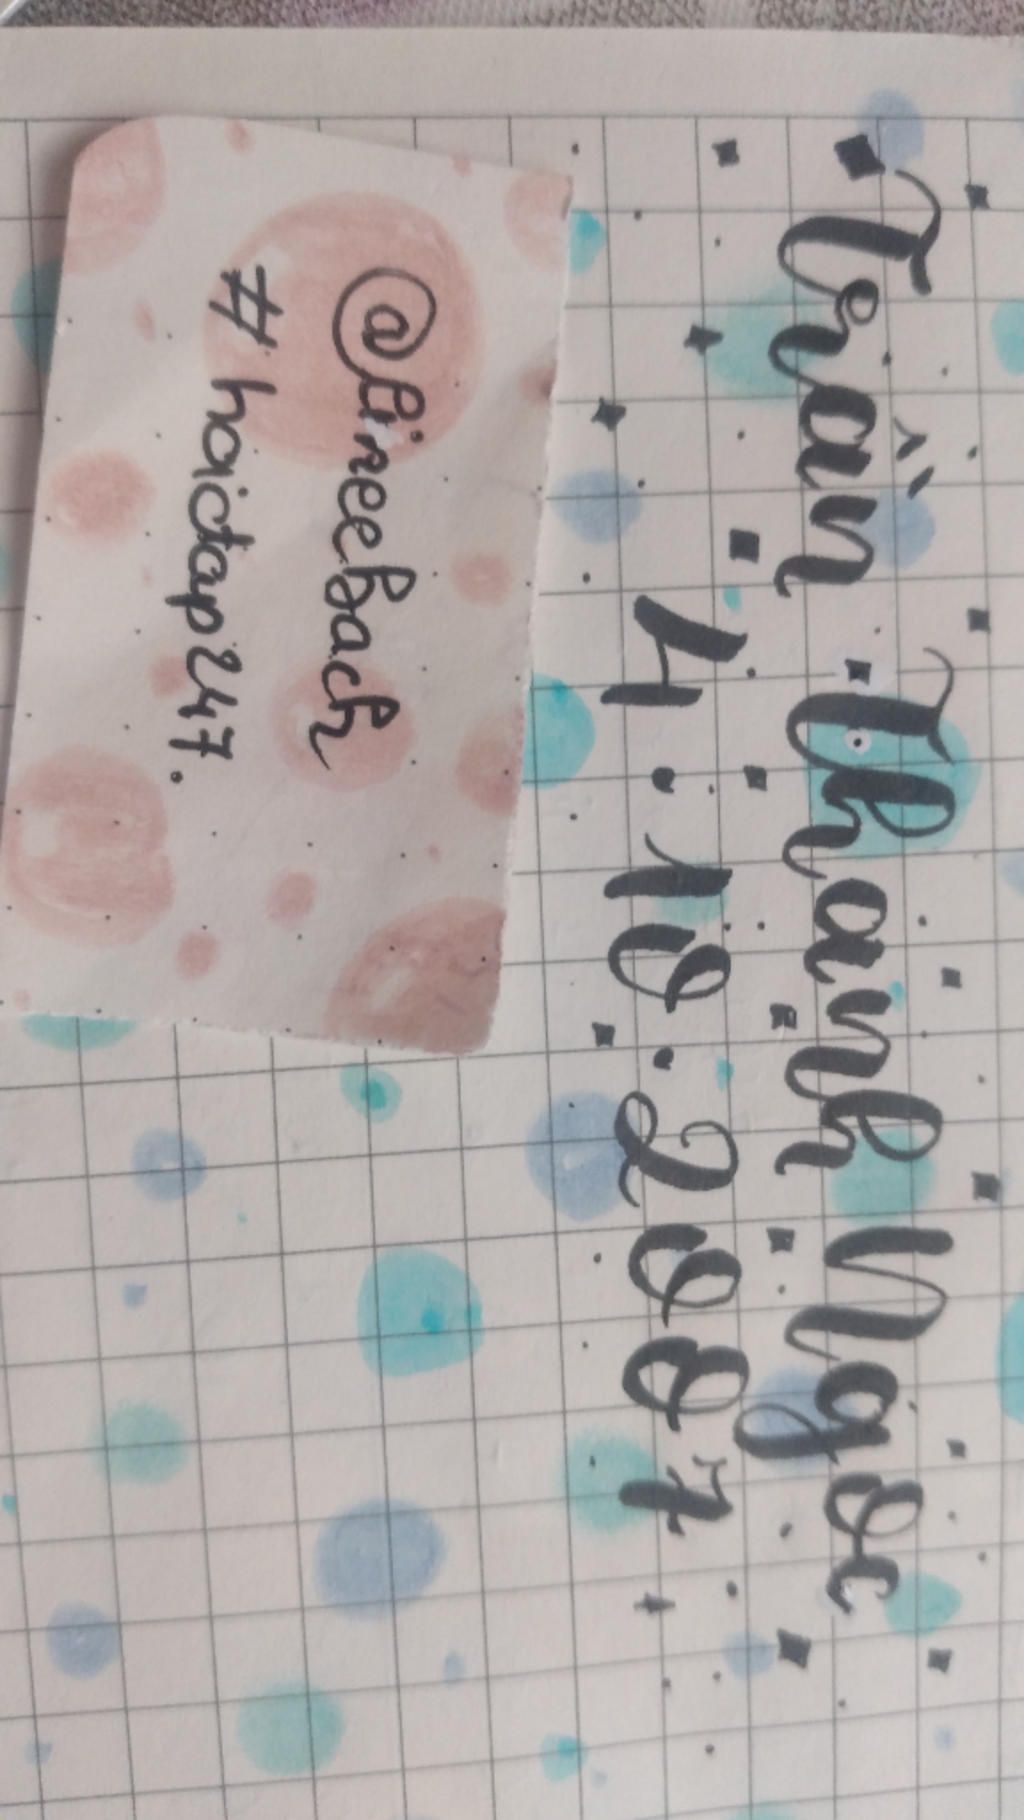 Trần Thanh Ngọc
4.10.2007
@lineebach
#hoctap247.